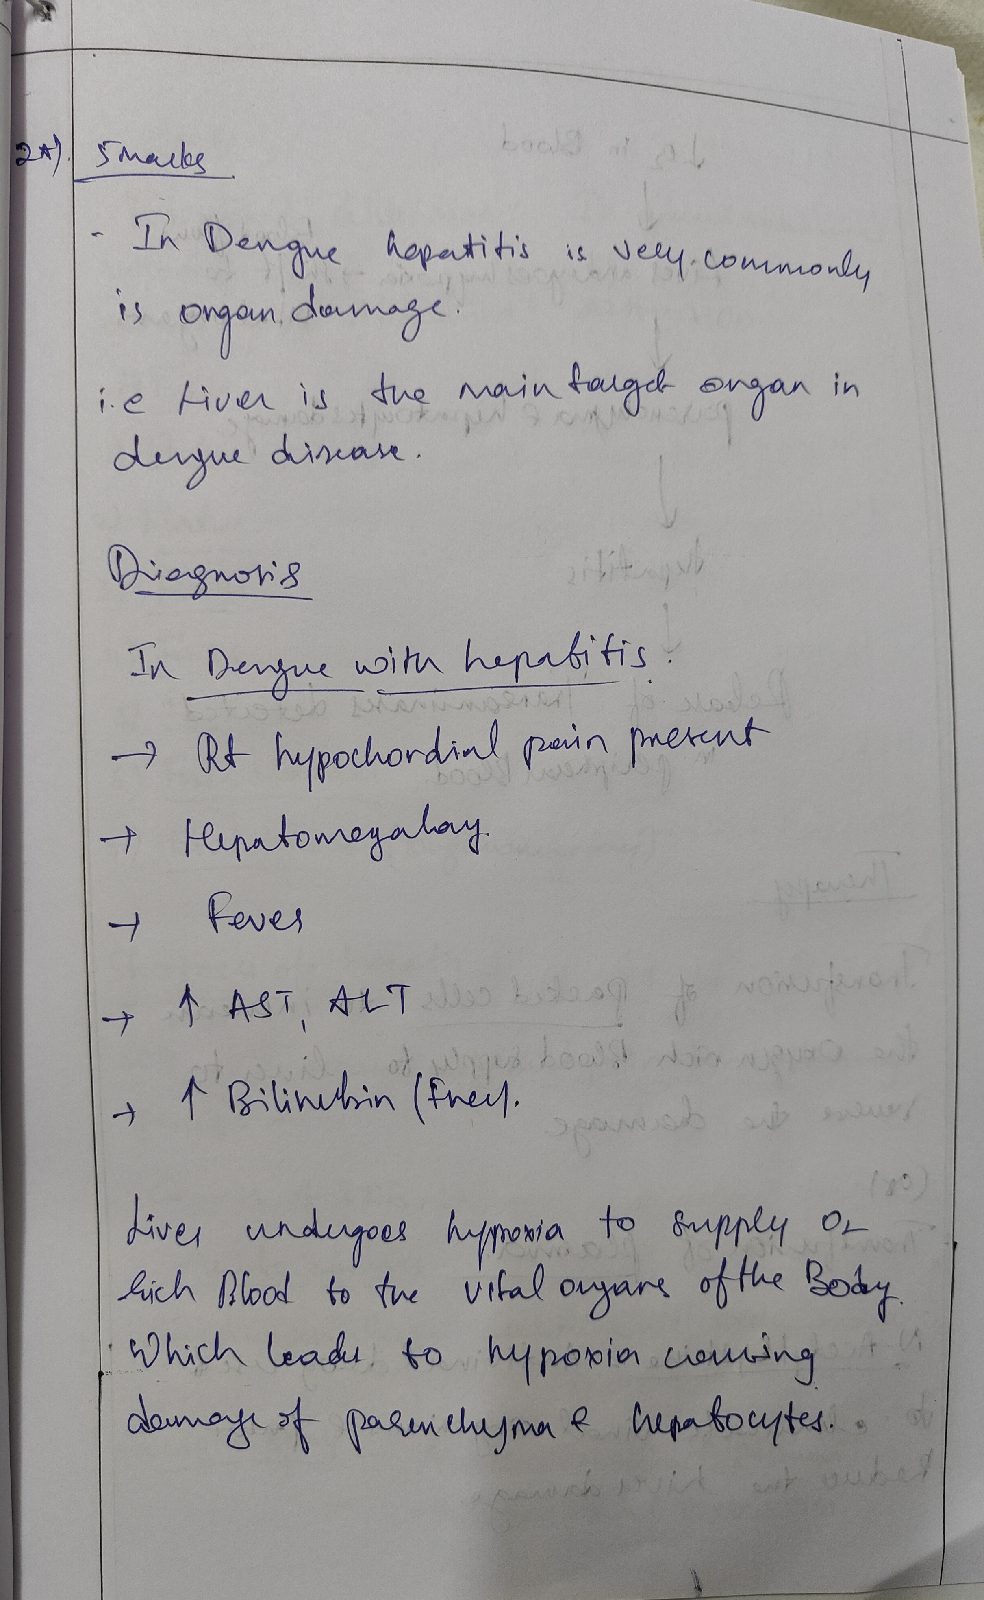 2A). 5 Marks
- In Dengue hepatitis is very commonly
is organ damage.
i.e Liver is the main target organ in
dengue disease.
Diagnosis
In Dengue with hepatitis.
→ Rt hypochordial pain present
→ Hepatomegalay.
→ Fever
→ ↑ AST, ALT
→ ↑ Bilirubin (Free).
Liver undergoes hypoxia to supply O2
rich Blood to the vital organs of the Body.
Which leads to hypoxia causing
damage of parenchyma & hepatocytes.